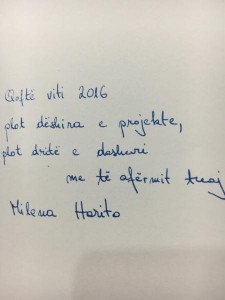 Qoftë viti 2016
plot dëshira e projekte,
plot dritë e dashuri
me të afërmit tuaj
Milena Harito